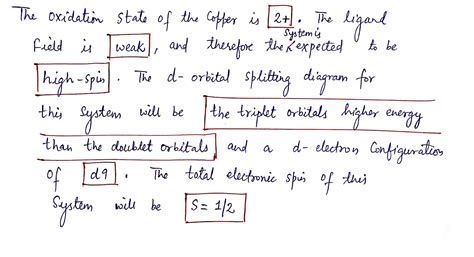 The oxidation state of the Copper is 2+. The ligand
field is weak, and therefore the system is expected to be
high-spin. The d-orbital splitting diagram for
this system will be the triplet orbitals higher energy
than the doublet orbitals and a d-electron configuration
of d9. The total electronic spin of this
System will be S = 1/2